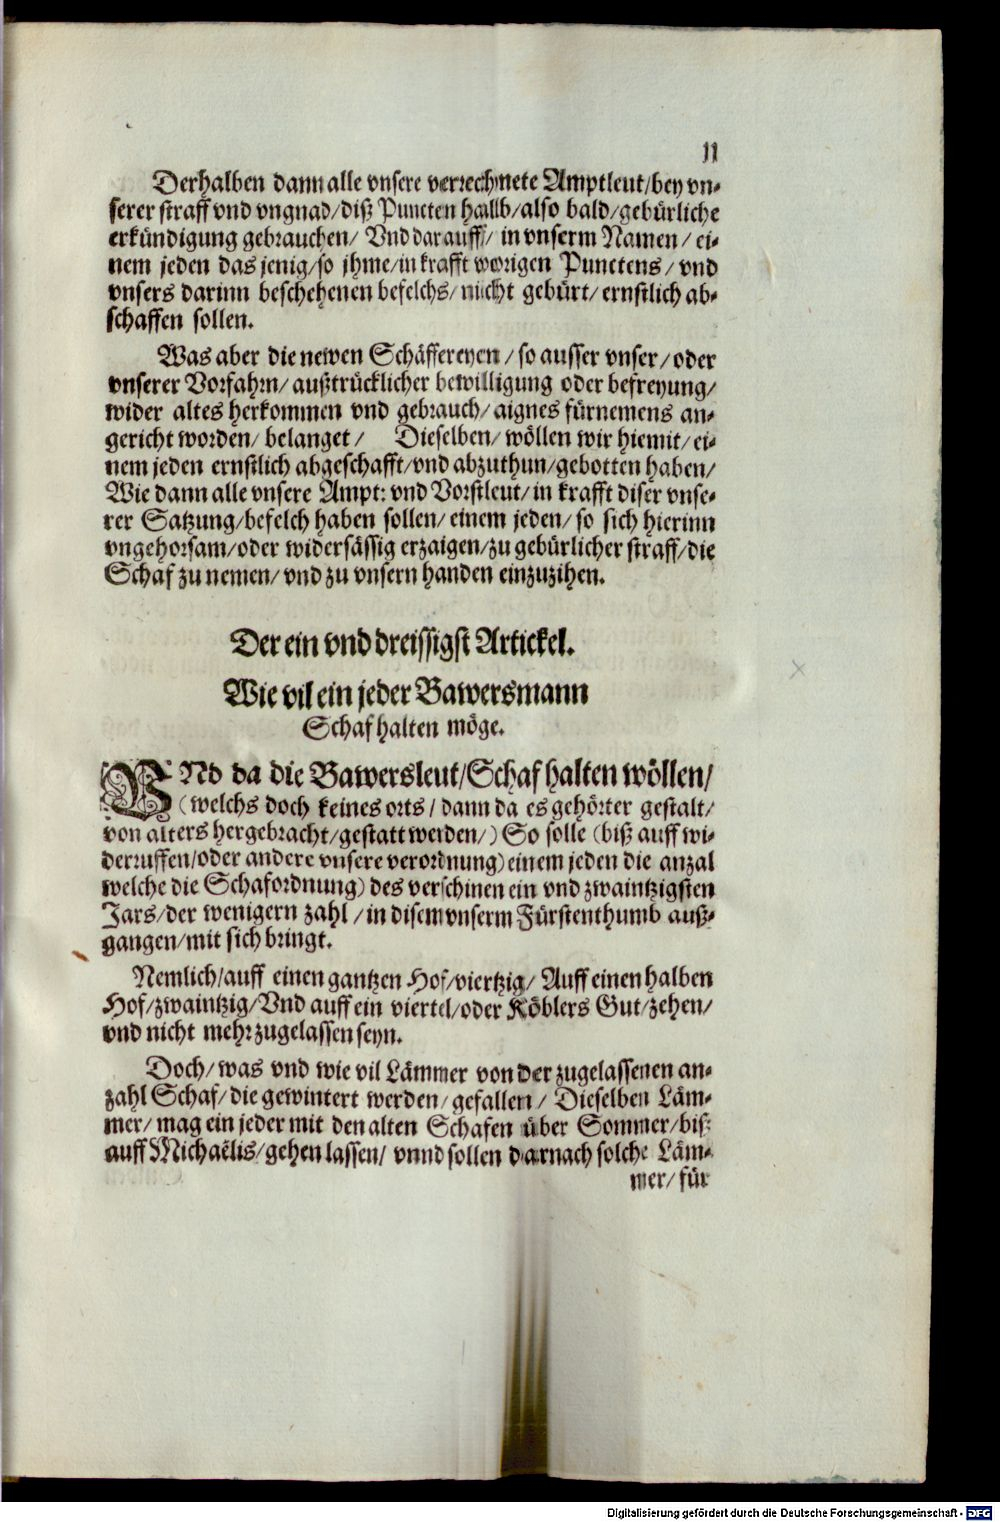 11
Derhalben dann alle vnsere verrechnete Amptleut/bey vn-
serer straff vnd vngnad/diß Puncten halb/also bald/gebürliche
erkündigung gebrauchen/ Vnd darauff/ in vnserm Namen/ ei-
nem jeden das jenig/so jhme/in krafft vorigen Punctens/ vnd
vnsers darinn beschehenen befelchs/ nicht gebürt/ ernstlich ab-
schaffen sollen.
Was aber die newen Schäffereyen/so ausser vnser/oder
vnserer Vorfahrn/ außtrücklicher bewilligung oder befreyung/
wider altes herkommen vnd gebrauch/aignes fürnemens an-
gericht worden/ belanget/ Dieselben/ wöllen wir hiemit/ei-
nem jeden ernstlich abgeschafft/vnd abzuthun/gebotten haben/
Wie dann alle vnsere Ampt: vnd Vorstleut/in krafft diser vnse-
rer Satzung/befelch haben sollen/einem jeden/so sich hierinn
vngehorsam/oder widersässig erzaigen/zu gebürlicher straff/die
Schaf zu nemen/vnd zu vnsern handen einzuzihen.
Der ein vnd dreissigst Artickel.
Wie vil ein jeder Bawersmann
Schaf halten möge.
VNd da die Bawersleut/Schaf halten wöllen/
(welchs doch keines orts/dann da es gehörter gestalt/
von alters hergebracht/gestatt werden/) So solle (biß auff wi-
derruffen/oder andere vnsere verordnung) einem jeden die anzal
welche die Schafordnung) des verschinen ein vnd zwaintzigsten
Jars/der wenigern zahl/in disem vnserm Fürstenthumb auß-
gangen/mit sich bringt.
Nemlich/auff einen gantzen Hof/viertzig/ Auff einen halben
Hof/zwaintzig/Vnd auff ein viertel/oder Köblers Gut/zehen/
vnd nicht mehr zugelassen seyn.
Doch/was vnd wie vil Lämmer von der zugelassenen an-
zahl Schaf/die gewintert werden/gefallen/ Dieselben Läm-
mer/mag ein jeder mit den alten Schafen über Sommer/biß
auff Michaëlis/gehen lassen/ vnnd sollen darnach solche Läm-
mer/für
Digitalisierung gefördert durch die Deutsche Forschungsgemeinschaft - DFG